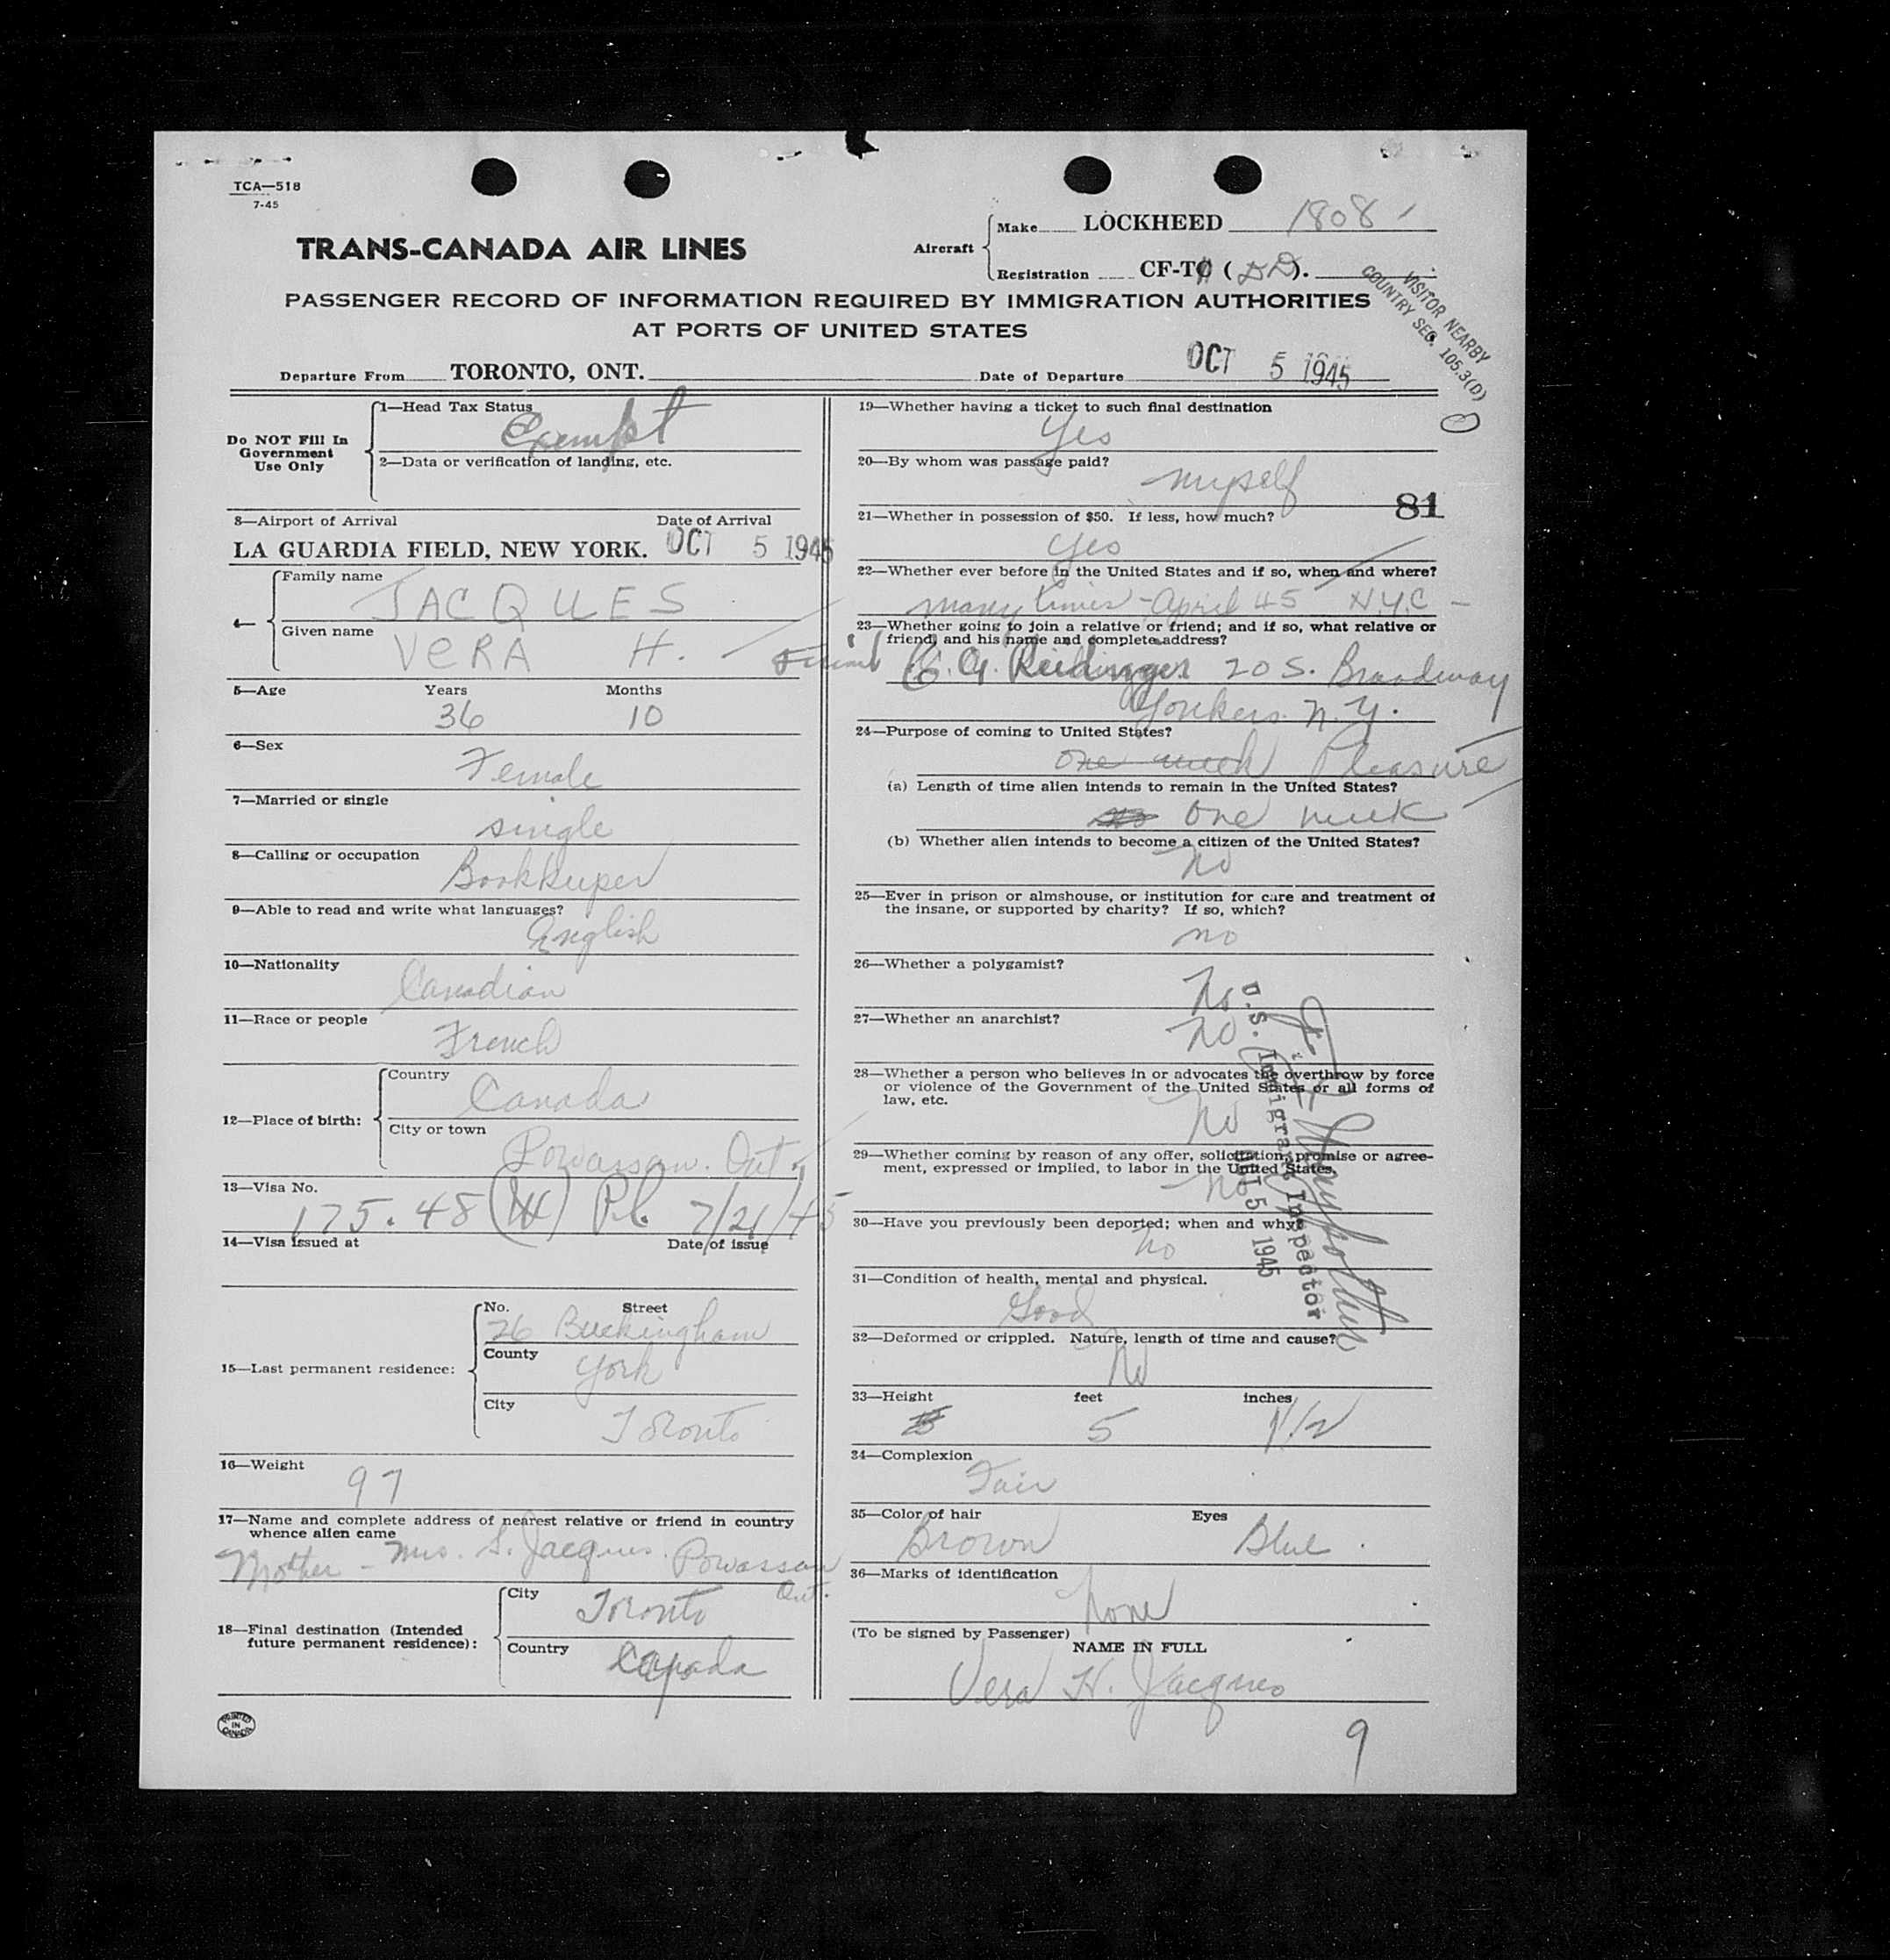 TCA—518
7-45
TRANS-CANADA AIR LINES
Aircraft
Make LOCKHEED 1808
Registration CF-T ( DD ).
PASSENGER RECORD OF INFORMATION REQUIRED BY IMMIGRATION AUTHORITIES
AT PORTS OF UNITED STATES
VISITOR NEARBY
COUNTRY SEC. 105.3(D)
Departure From TORONTO, ONT.
Date of Departure OCT 5 1945
Do NOT Fill In
Government
Use Only
1—Head Tax Status
Exempt
2—Data or verification of landing, etc.
3—Airport of Arrival Date of Arrival
LA GUARDIA FIELD, NEW YORK. OCT 5 1945
4—
Family name
JACQUES
Given name
VERA H.
5—Age Years Months
36 10
6—Sex
Female
7—Married or single
single
8—Calling or occupation
Bookkeeper
9—Able to read and write what languages?
English
10—Nationality
Canadian
11—Race or people
French
12—Place of birth:
Country
Canada
City or town
Powassan. Ont.
13—Visa No.
175.48 (W) P.L. 7/21/45
14—Visa issued at Date of issue
15—Last permanent residence:
No. Street
26 Buckingham
County
York
City
Toronto
16—Weight
97
17—Name and complete address of nearest relative or friend in country
whence alien came
Mother - Mrs. S. Jacques. Powassan
Ont.
18—Final destination (Intended
future permanent residence):
City
Toronto
Country
Canada
PRINTED
IN
CANADA
19—Whether having a ticket to such final destination
Yes
20—By whom was passage paid?
myself
81
21—Whether in possession of $50. If less, how much?
yes
22—Whether ever before in the United States and if so, when and where?
many times - April 45 N.Y.C -
23—Whether going to join a relative or friend; and if so, what relative or
friend, and his name and complete address?
Friend 20 S. Broadway
Yonkers. N.Y.
24—Purpose of coming to United States?
one week Pleasure
(a) Length of time alien intends to remain in the United States?
One week
(b) Whether alien intends to become a citizen of the United States?
No
25—Ever in prison or almshouse, or institution for care and treatment of
the insane, or supported by charity? If so, which?
no
26—Whether a polygamist?
No
27—Whether an anarchist?
No
28—Whether a person who believes in or advocates the overthrow by force
or violence of the Government of the United States or all forms of
law, etc.
No
29—Whether coming by reason of any offer, solicitation, promise or agree-
ment, expressed or implied, to labor in the United States.
No
U.S. Immigrant Inspector
OCT 5 1945
30—Have you previously been deported; when and why?
No
31—Condition of health, mental and physical.
Good
32—Deformed or crippled. Nature, length of time and cause?
No
33—Height feet inches
5 1 1/2
34—Complexion
Fair
35—Color of hair Eyes
Brown Blue.
36—Marks of identification
none
(To be signed by Passenger)
NAME IN FULL
Vera H. Jacques
9